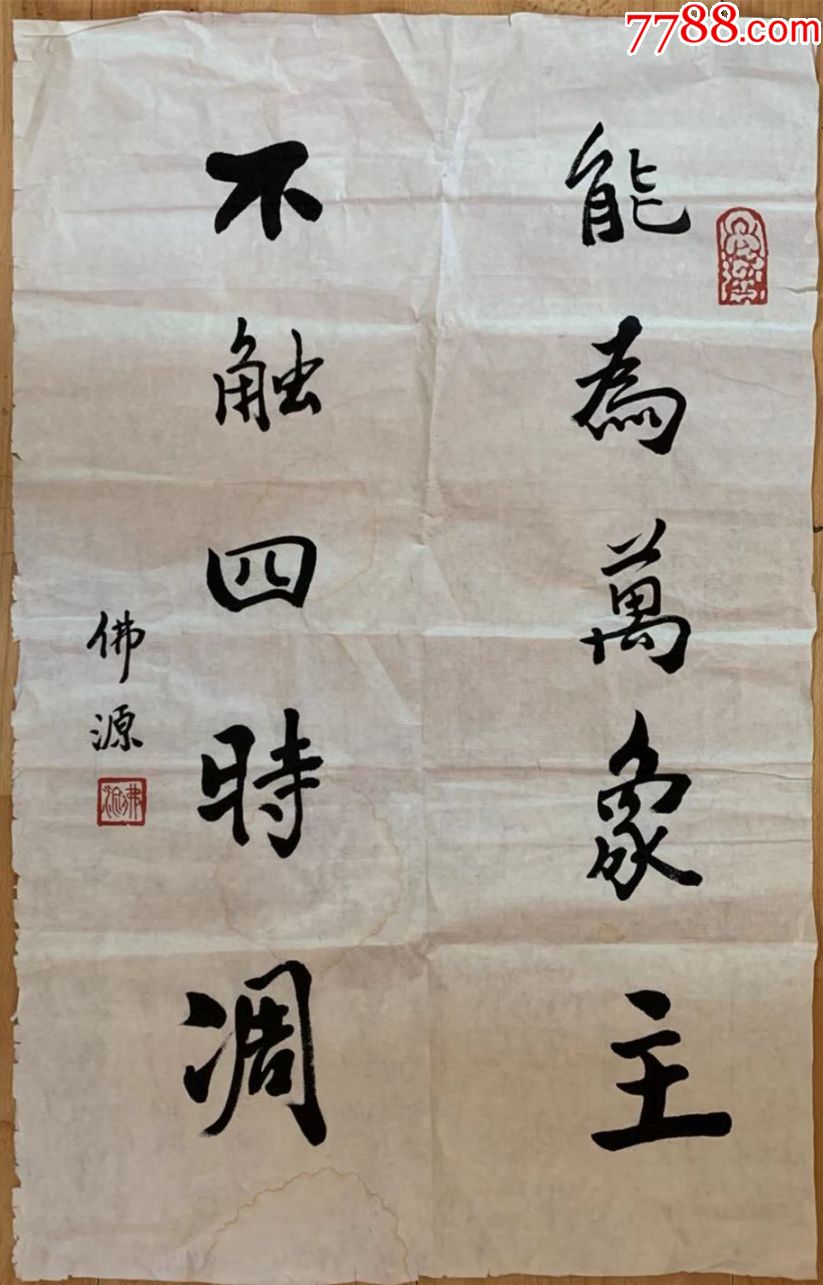 7788.com
能為萬象主
不触四時凋
佛源